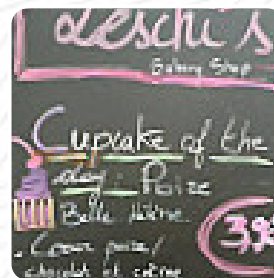 Leschi's
Bakery Shop
Cupcake of the
day : Poire
Belle Hélène
. Coeur poire/
chocolat et crème